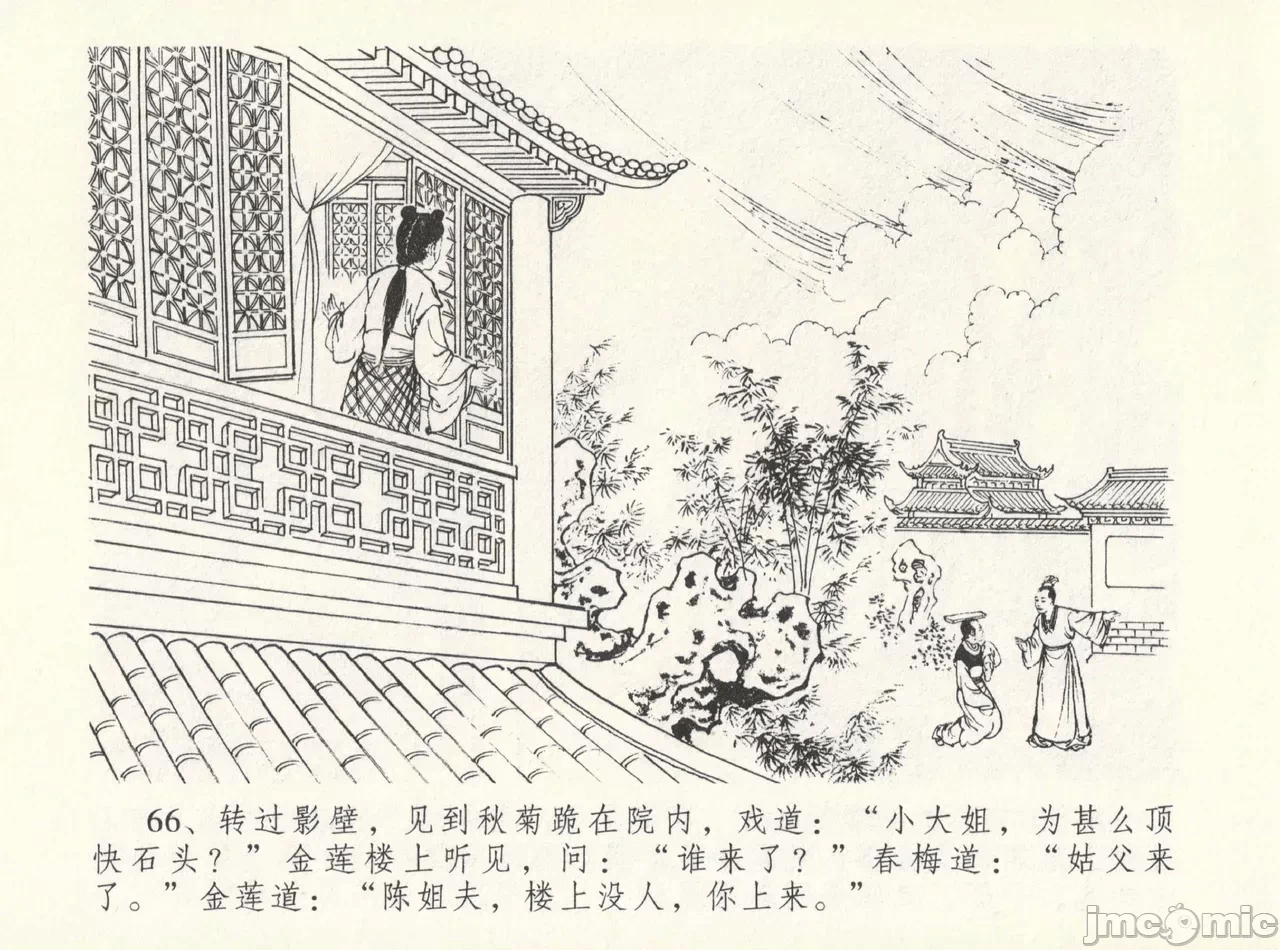 66、转过影壁，见到秋菊跪在院内，戏道：“小大姐，为甚么顶
快石头？”金莲楼上听见，问：“谁来了？”春梅道：“姑父来
了。”金莲道：“陈姐夫，楼上没人，你上来。”
jmcomic